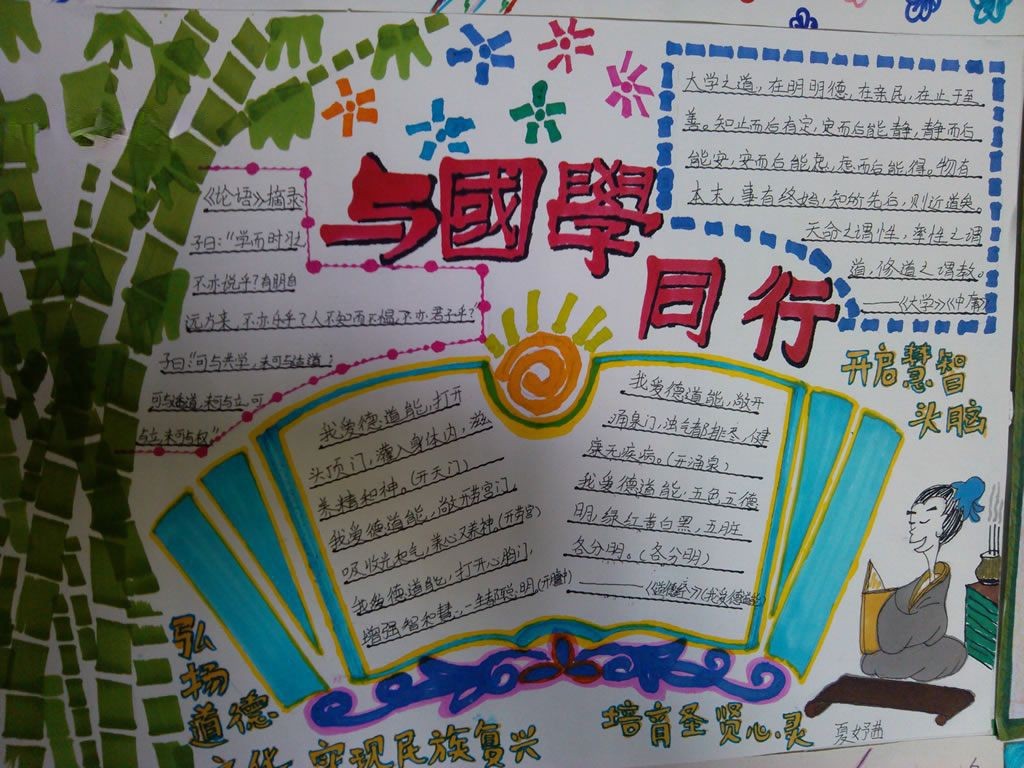 与國學
同行
《论语》摘录
子曰:“学而时习
不亦悦乎?有朋自
远方来,不亦乐乎?人不知而不愠,不亦君子乎”
子曰:“可与共学,未可与适道;
可与适道,未可与立,可
与立,未可与权”
大学之道,在明明德,在亲民,在止于至
善。知止而后有定,定而后能静,静而后
能安,安而后能虑,虑而后能得。物有
本末,事有终始,知所先后,则近道矣。
天命之谓性,率性之谓
道,修道之谓教。
——《大学》《中庸》
开启慧智
头脑
我爱德道能,打开
头顶门,灌入身体内,滋
养精和神。(开天门)
我爱德道能,敞开劳宫门,
吸收光和气,养心又养神。(开劳宫)
我爱德道能,打开心胸门,
增强智和慧,一生都聪明。
我爱德道能,敞开
涌泉门,浊气都排尽,健
康无疾病。(开涌泉)
我爱德道能,五色立德
明,绿红黄白黑,五脏
各分明。(各分明)
(我爱德道能)
弘
扬
道德
文化 实现民族复兴
培育圣贤心灵
夏妤茜